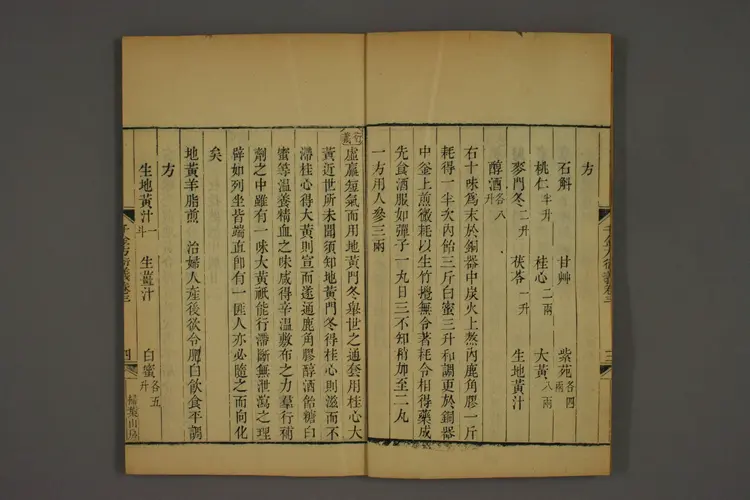 方
石斛 甘艸 紫苑各四兩
桃仁半升 桂心二兩 大黃八兩
麥門冬二升 茯苓一升 生地黃汁
醇酒各八升
右十味爲末於銅器中炭火上熬內鹿角膠一斤
耗得一半次內飴三斤白蜜三升和調更於銅器
中釜上煎微耗以生竹攪無令著耗令相得藥成
先食酒服如彈子一丸日三不知稍加至二丸
一方用人參三兩
衍義
虛羸短氣而用地黃門冬舉世之通套用桂心大
黃近世所未聞須知地黃門冬得桂心則滋而不
滯桂心得大黃則宣而遂通鹿角膠醇酒飴糖白
蜜等溫養精血之味咸得辛溫敷布之力羣行補
劑之中雖有一味大黃祇能行滯斷無泄瀉之理
辟如列坐皆端直卽有一匪人亦必隨之而向化
矣
地黃羊脂煎 治婦人產後欲令肥白飲食平調
方
生地黃汁一斗 生薑汁 白蜜各五升
千金方衍義卷三
三
千金方衍義卷三
四
掃葉山房